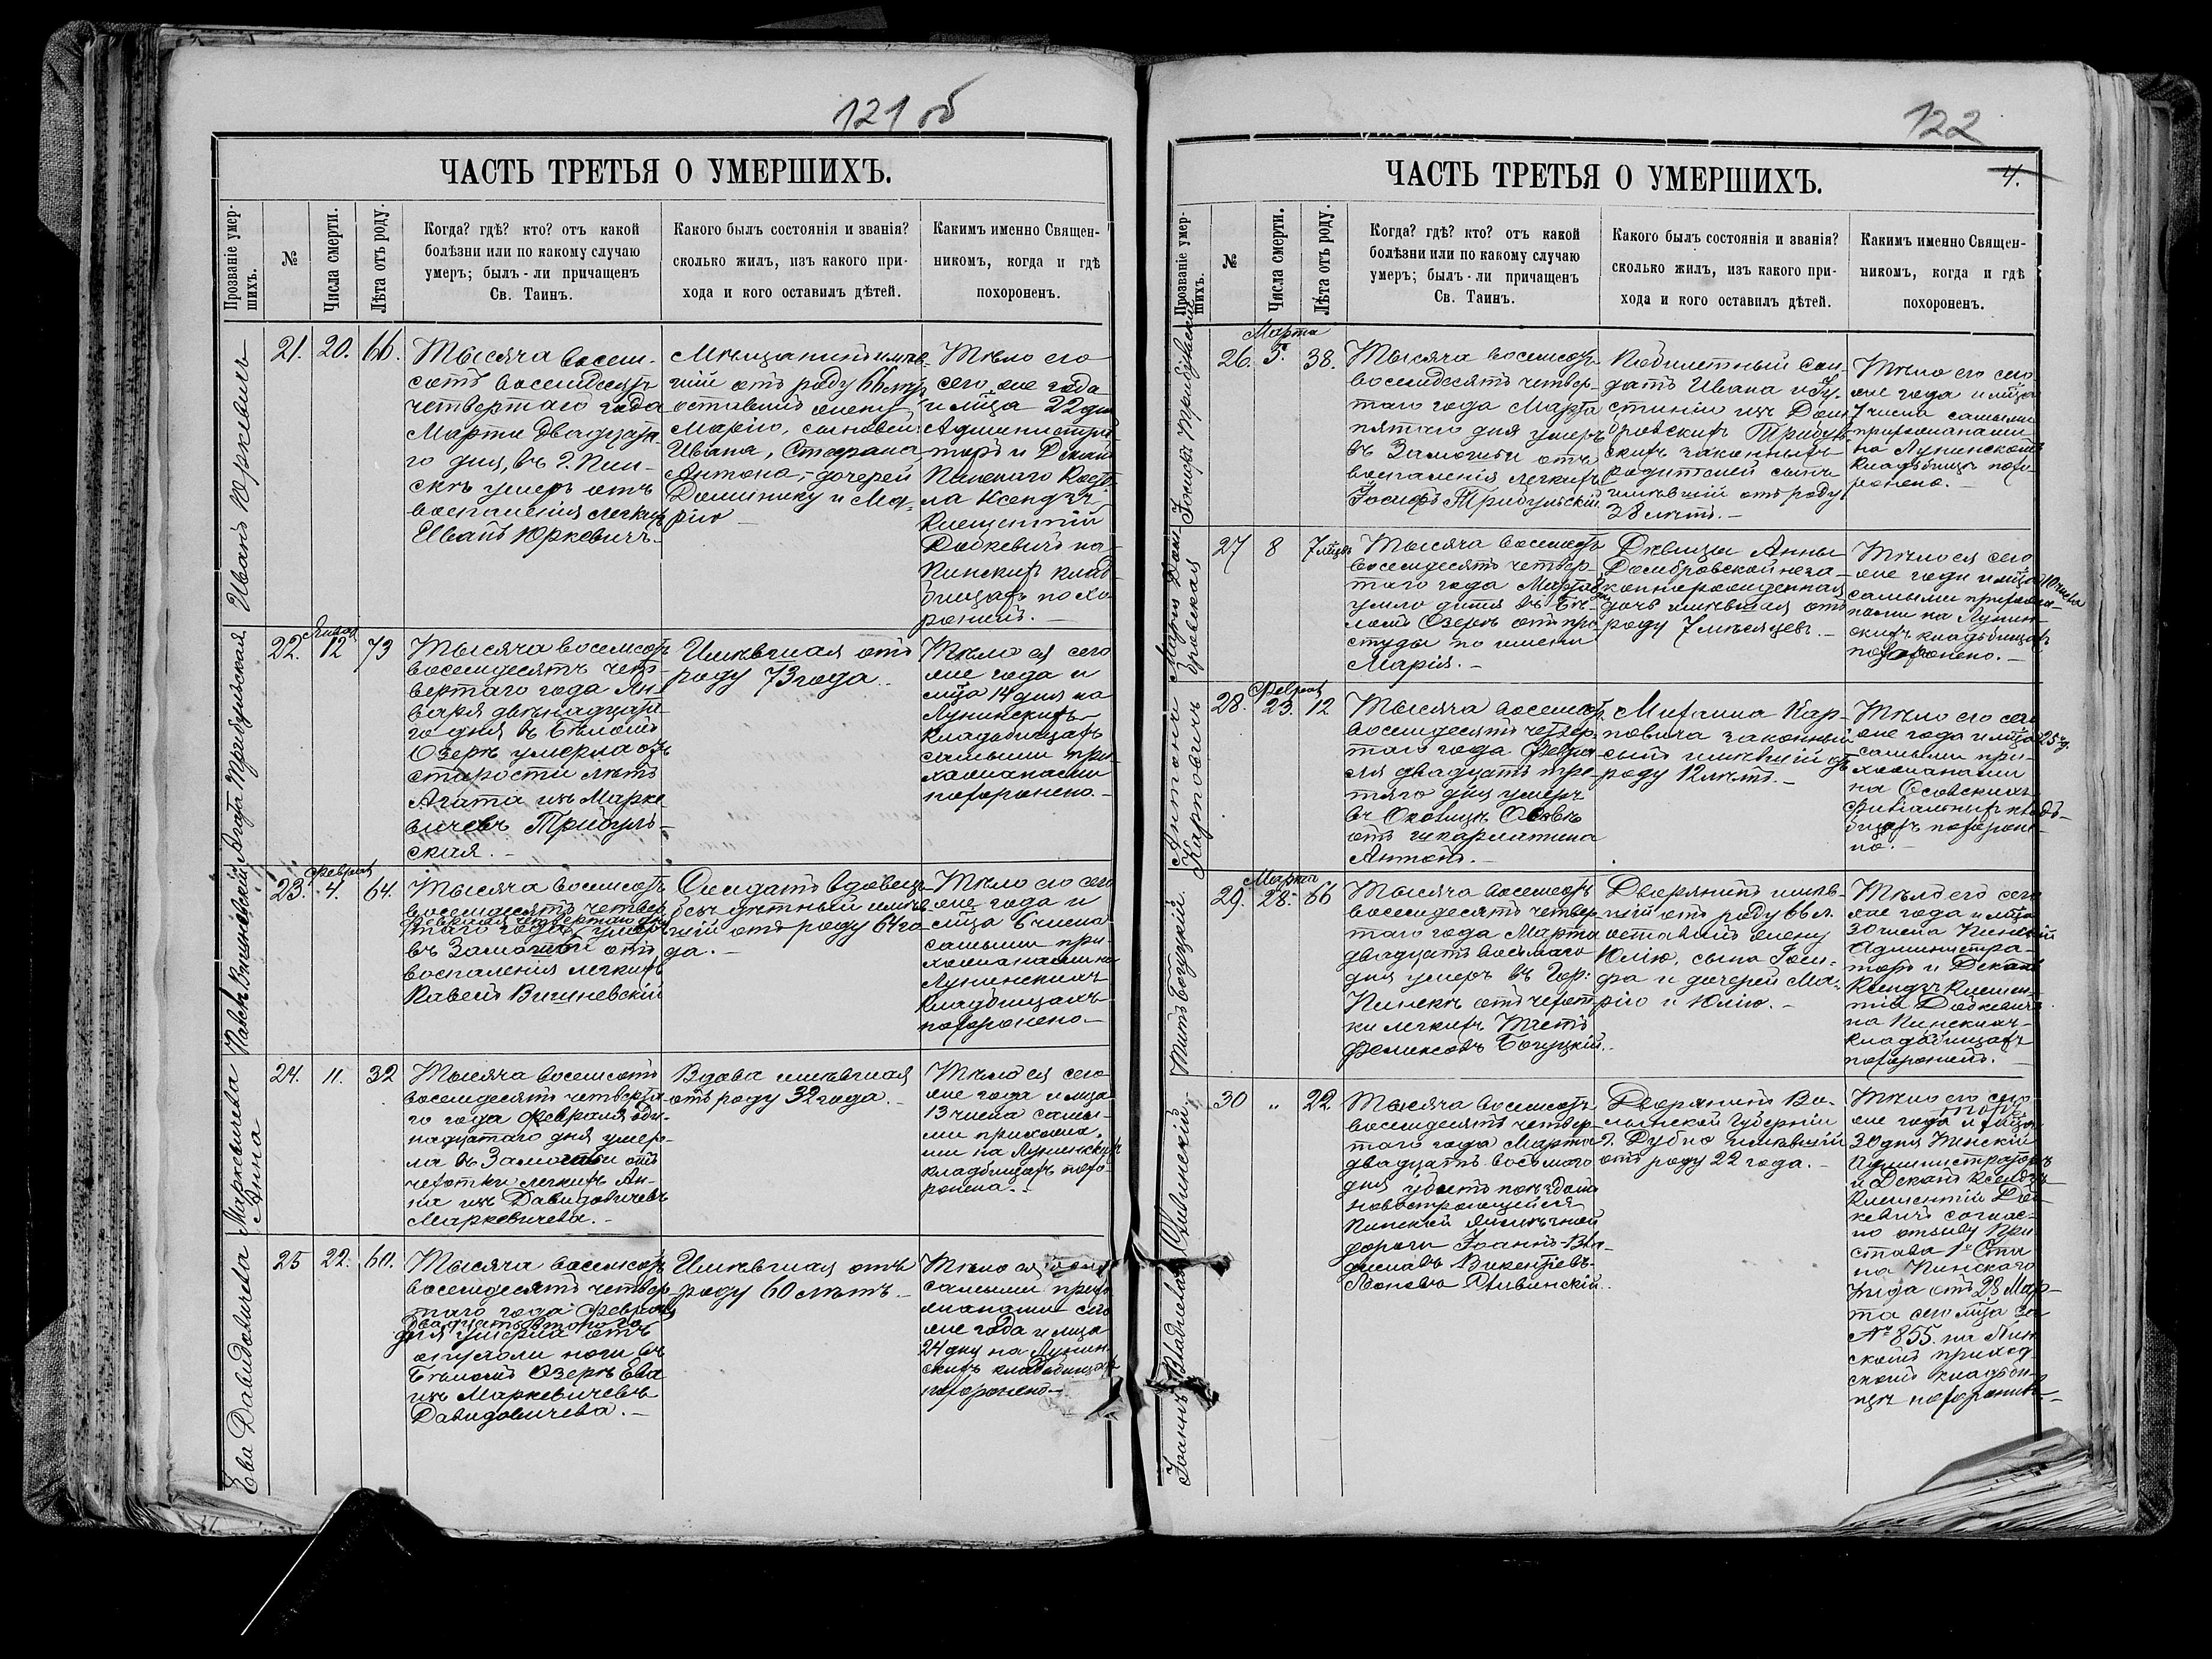 121 об
ЧАСТЬ ТРЕТЬЯ О УМЕРШИХЪ.
Прозваніе умер-
шихъ.
№
Числа смерти.
Лѣта отъ роду.
Когда? гдѣ? кто? отъ какой
болѣзни или по какому случаю
умеръ; былъ-ли причащенъ
Св. Таинъ.
Какого былъ состоянія и званія?
сколько жилъ, изъ какого при-
хода и кого оставилъ дѣтей.
Какимъ именно Священ-
никомъ, когда и гдѣ
похороненъ.
Иванъ Юркевичъ
21.
20.
66.
Тысяча восем-
сотъ восемдесятъ
четвертаго года
Марта двадцата-
го дня, въ г. Пин-
скѣ умеръ отъ
воспаленія легкихъ
Иванъ Юркевичъ.
Мѣщанинъ имѣв-
шій отъ роду 66 лѣтъ
оставилъ жену
Марію, сыновей
Ивана, Стефана
Антона, дочерей
Доминику и Ма-
рію
Тѣло его
сего же года
и мѣца 22 дня
Администра-
торъ и Деканъ
Пинскаго Косте-
ла Ксендзъ
Клементій
Додкевичъ на
Пинскихъ клад-
бищахъ похо-
ронилъ.
Агата Трибульская
22.
Января
12
73
Тысяча восемсотъ
восемдесятъ чет-
вертаго года Ян-
варя двѣнадцата-
го дня въ Бѣломъ
Озерѣ умерла отъ
старости лѣтъ
Агата изъ Марке-
вичевъ Трибуль-
ская.
Имѣвшая отъ
роду 73 года.
Тѣло ея сего
же года и
мѣца 14 дня на
Лунинскихъ
кладбищахъ
самыми при-
хожанами
похоронено.
Павелъ Вишневскій
23.
Февраля
4.
64.
Тысяча восемсотъ
восемдесятъ четвер-
таго года Февраля четвертаго дня умеръ
въ Замошьи отъ
воспаленія легкихъ
Павелъ Вишневскій
Солдатъ вдовецъ
бездѣтный имѣв-
шій отъ роду 64 го-
да.
Тѣло его сего
же года и
мѣца 6 числа
самыми при-
хожанами на
Лунинскихъ
Кладбищахъ
похоронено.
Маркевичева
Анна
24.
11.
32
Тысяча восемсотъ
восемдесятъ четверта-
го года Февраля оди-
надцатаго дня умер-
ла въ Замошьи отъ
чехотки легкихъ Ан-
на изъ Давидовичевъ
Маркевичева.
Вдова имѣвшая
отъ роду 32 года.
Тѣло ея сего
же года и мѣца
13 числа самы-
ми прихожа-
ми на Лунинскихъ
кладбищахъ похо-
ронена.
Ева Давидовичева
25
22.
60.
Тысяча восемсотъ
восемдесятъ четвер-
таго года Февраля
двадцать втораго
дня умерла отъ
опухоли ноги въ
Бѣломъ Озерѣ Ева
изъ Маркевичевъ
Давидовичева.
Имѣвшая отъ
роду 60 лѣтъ.
Тѣло ея
самыми прихо-
жанами сего
же года и мѣца
24 дня на Лунин-
скихъ кладбищахъ
похоронено.
122
4.
ЧАСТЬ ТРЕТЬЯ О УМЕРШИХЪ.
Прозваніе умер-
шихъ.
№
Числа смерти.
Лѣта отъ роду.
Когда? гдѣ? кто? отъ какой
болѣзни или по какому случаю
умеръ; былъ-ли причащенъ
Св. Таинъ.
Какого былъ состоянія и званія?
сколько жилъ, изъ какого при-
хода и кого оставилъ дѣтей.
Какимъ именно Священ-
никомъ, когда и гдѣ
похороненъ.
Іосифъ Трибульскій
26.
Марта
5.
38.
Тысяча восемсотъ
восемдесятъ четвер-
таго года Марта
пятаго дня умеръ
въ Замошьи отъ
воспаленія легкихъ
Іосифъ Трибульскій
Побилетный сол-
датъ Ивана и Ю-
стиніи изъ Дом-
бровскихъ Трибуль-
скихъ законныхъ
родителей сынъ
имѣвшій отъ роду
38 лѣтъ.
Тѣло его сего
же года и мѣца
7 числа самыми
прихожанами
на Лунинскомъ
Кладбищѣ похо-
ронено.
Марія Дом-
бровская
27
8
7 мѣцевъ
Тысяча восемсотъ
восемдесятъ четвер-
таго года Марта 8 дня
умло дитя въ Бѣ-
ломъ Озерѣ отъ про-
студы по имени
Марія.
Дѣвицы Анны
Домбровской неза-
коннорожденная
дочь имѣвшая отъ
роду 7 мѣсяцевъ.
Тѣло ея сего
же года и мѣца 10 числа
самыми прихожа-
нами на Лунин-
скихъ кладбищахъ
похоронено.
Антонъ
Карповичъ
28.
Февраля
23.
12
Тысяча восемсотъ
восемдесятъ четвер-
таго года Февра-
ля двадцать тре-
тяго дня умеръ
въ Околицѣ Осовѣ
отъ шкарлатина
Антонъ.
Михаила Кар-
повича законный
сынъ имѣвшій отъ
роду 12 лѣтъ.
Тѣло его сего
же года и мѣца 25 ч.
самыми при-
хожанами
на Осовскихъ
Филіальныхъ клад-
бищахъ похороне-
но.
Титъ Богуцкій.
29.
Марта
28.
66
Тысяча восемсотъ
восемдесятъ четвер-
таго года Марта
двадцать восьмаго
дня умеръ въ Гор:
Пинскѣ отъ чехот-
ки легкихъ Титъ
Феликсовъ Богуцкій.
Дворянинъ имѣв-
шій отъ роду 66 л.
оставилъ жену
Юлію, сына Іоси-
фа и дочерей Ма-
рію и Юлію.
Тѣло его сего
же года и мѣца
30 числа Пинскій
Администра-
торъ и Деканъ
Ксендзъ Клемен-
тій Додкевичъ
на Пинскихъ
кладбищахъ
похоронилъ.
Іоаннъ-Владиславъ Сливинскій
30
"
22
Тысяча восемсотъ
восемдесятъ четвер-
таго года Марта
двадцать восьмаго
дня убитъ поѣздомъ
новостроющейся
Пинской желѣзной
дороги Іоаннъ-Вла-
диславъ Викентіевъ-
Леоновъ Сливинскій.
Дворянинъ Во-
лынской Губерніи
г. Дубно имѣвшій
отъ роду 22 года.
Тѣло его сего
же года и того мѣца
30 дня Пинскій
Администраторъ
и Деканъ Ксендзъ
Клементій Дод-
кевичъ соглас-
но отзыву При-
става 1го Ста-
на Пинскаго
уѣзда отъ 28 Мар-
та сего мѣца за
№ 855. на Пин-
скомъ приход-
скомъ кладби-
щѣ похоронилъ